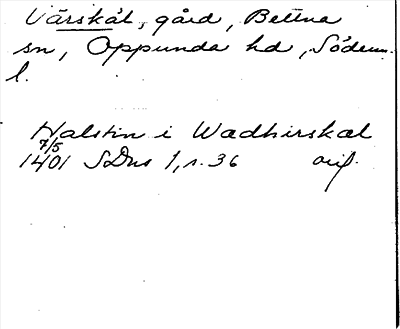 Vårskål, gård, Bettna
sn, Oppunda hd, Söderm.
l.
Halstin i Wadhirskal
7/5
1401 SDns 1, s. 36 orig.